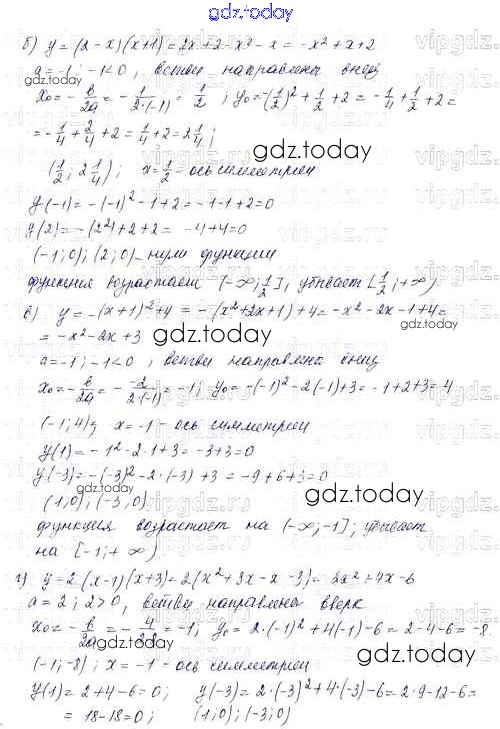 gdz.today
б) y = (2 - x)(x+1) = 2x + 2 - x² - x = -x² + x + 2
a = -1; -1 < 0, ветви направлены вниз
x₀ = -b/2a = -1/2·(-1) = 1/2; y₀ = -(1/2)² + 1/2 + 2 = -1/4 + 1/2 + 2 =
= -1/4 + 2/4 + 2 = 1/4 + 2 = 2 1/4;
(1/2; 2 1/4); x = 1/2 - ось симметрии
gdz.today
y(-1) = -(-1)² - 1 + 2 = -1 - 1 + 2 = 0
y(2) = -(2²) + 2 + 2 = -4 + 4 = 0
gdz.today
(-1; 0); (2; 0) - нули функции
функция возрастает (-∞; 1/2], убывает [1/2; +∞)
в) y = -(x+1)² + 4 = -(x² + 2x + 1) + 4 = -x² - 2x - 1 + 4 =
gdz.today
= -x² - 2x + 3
gdz.today
a = -1; -1 < 0, ветви направлены вниз
x₀ = -b/2a = -2/2·(-1) = -1; y₀ = -(-1)² - 2(-1) + 3 = -1 + 2 + 3 = 4
(-1; 4); x = -1 - ось симметрии
y(1) = -1² - 2·1 + 3 = -3 + 3 = 0
y(-3) = -(-3)² - 2·(-3) + 3 = -9 + 6 + 3 = 0
gdz.today
(1; 0); (-3; 0)
gdz.today
функция возрастает на (-∞; -1]; убывает
на [-1; +∞)
г) y = 2(x-1)(x+3) = 2(x² + 3x - x - 3) = 2x² + 4x - 6
a = 2; 2 > 0, ветви направлены вверх
x₀ = -b/2a = -4/2·2 = -1; y₀ = 2·(-1)² + 4(-1) - 6 = 2 - 4 - 6 = -8
gdz.today
(-1; -8); x = -1 - ось симметрии
y(1) = 2 + 4 - 6 = 0; y(-3) = 2·(-3)² + 4·(-3) - 6 = 2·9 - 12 - 6 =
= 18 - 18 = 0; (1; 0); (-3; 0)